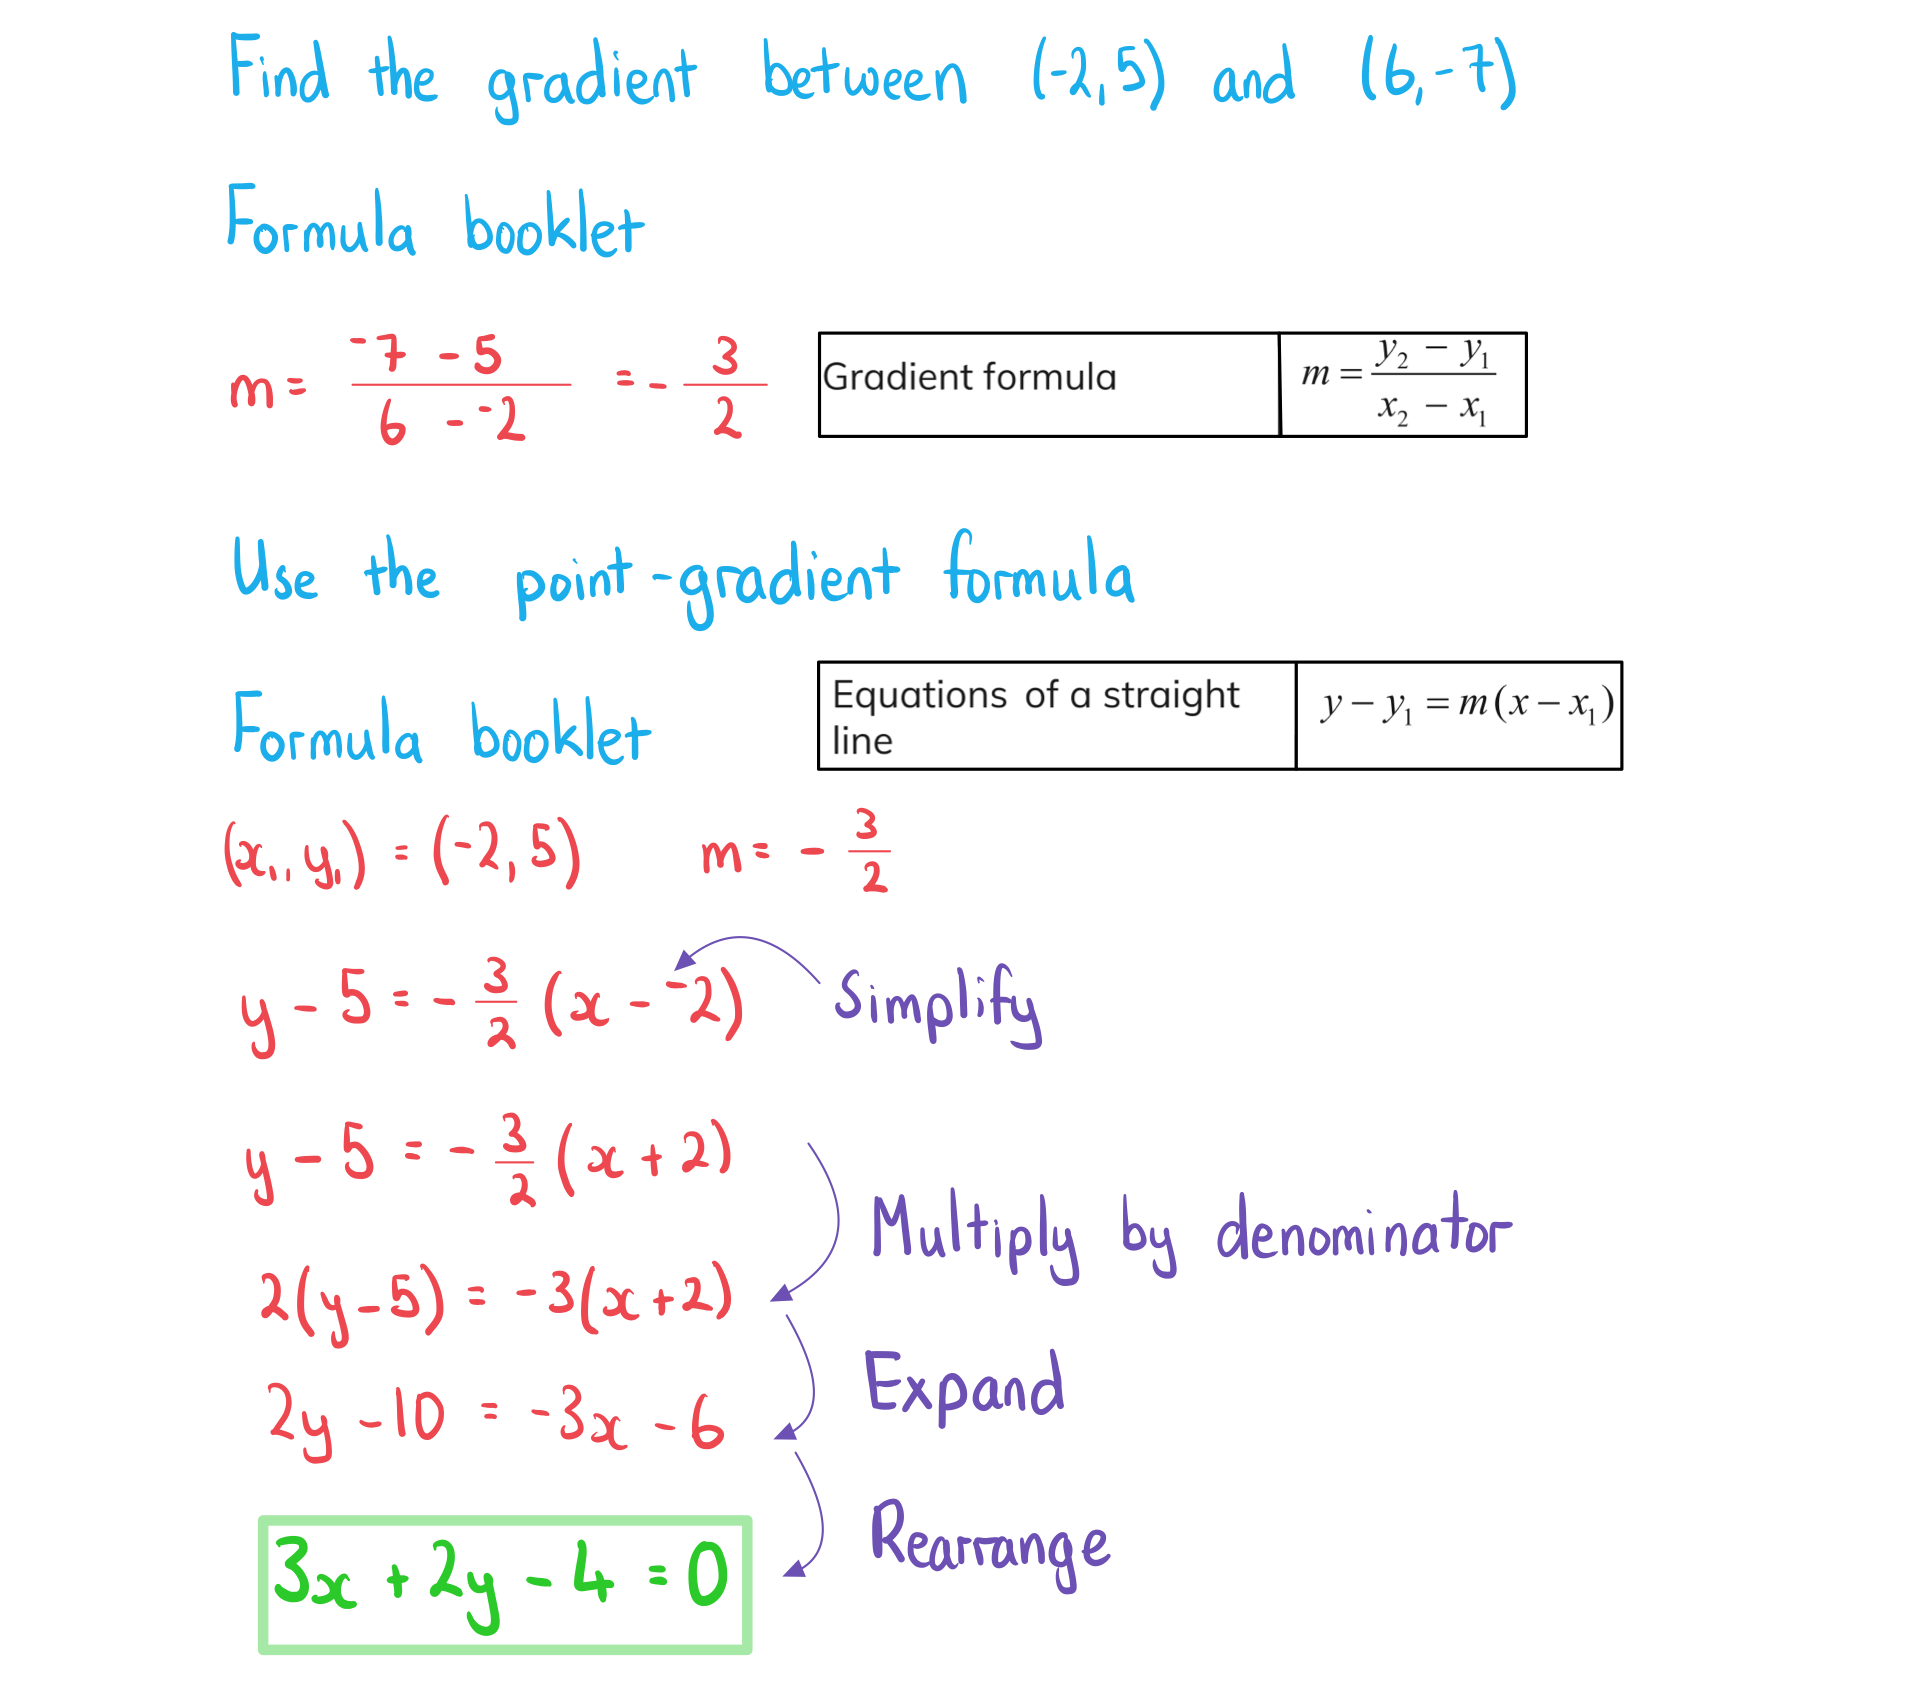 Find the gradient between (-2,5) and (6,-7)
Formula booklet
m = (-7 - 5)/(6 - -2) = - 3/2
Gradient formula m = (y₂ − y₁)/(x₂ − x₁)
Use the point-gradient formula
Equations of a straight line y − y₁ = m(x − x₁)
Formula booklet
(x₁, y₁) = (-2, 5) m = - 3/2
y - 5 = - 3/2 (x - -2) Simplify
y - 5 = - 3/2 (x + 2)
Multiply by denominator
2(y-5) = -3(x+2)
Expand
2y -10 = -3x - 6
Rearrange
3x + 2y - 4 = 0